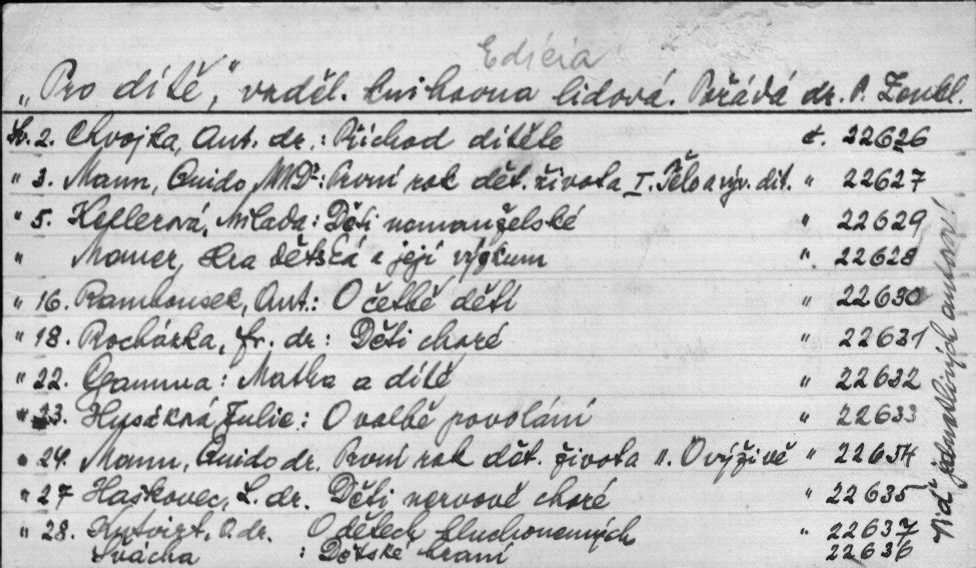 Edícia
„Pro dítě," vzděl. knihovna lidová. Pořádá dr. P. Zenkl.
Sv. 2. Chvojka, Ant. dr.: Příchod dítěte č. 22626
" 3. Mann, Guido, MDr: První rok dět. života I. Tělo a výv. dít. " 22627
" 5. Kellerová, Milada: Děti nemanželské " 22629
" Mauer, Hra dětská a její výzkum " 22628
" 16. Rambousek, Ant.: O četbě dětí " 22630
" 18. Procházka, Fr. dr.: Děti choré " 22631
" 22. Gamma: Matka a dítě " 22632
" 23. Husáková Julie: O volbě povolání " 22633
" 24. Mann, Guido dr. První rok dět. života II. O výživě " 22634
" 27 Haškovec, L. dr. Děti nervově choré " 22635
" 28. Kutvirt, O. dr. O dětech hluchoněmých " 22637
Svácha : Dětské hraní 22636
Viď jednotlivých autorů!